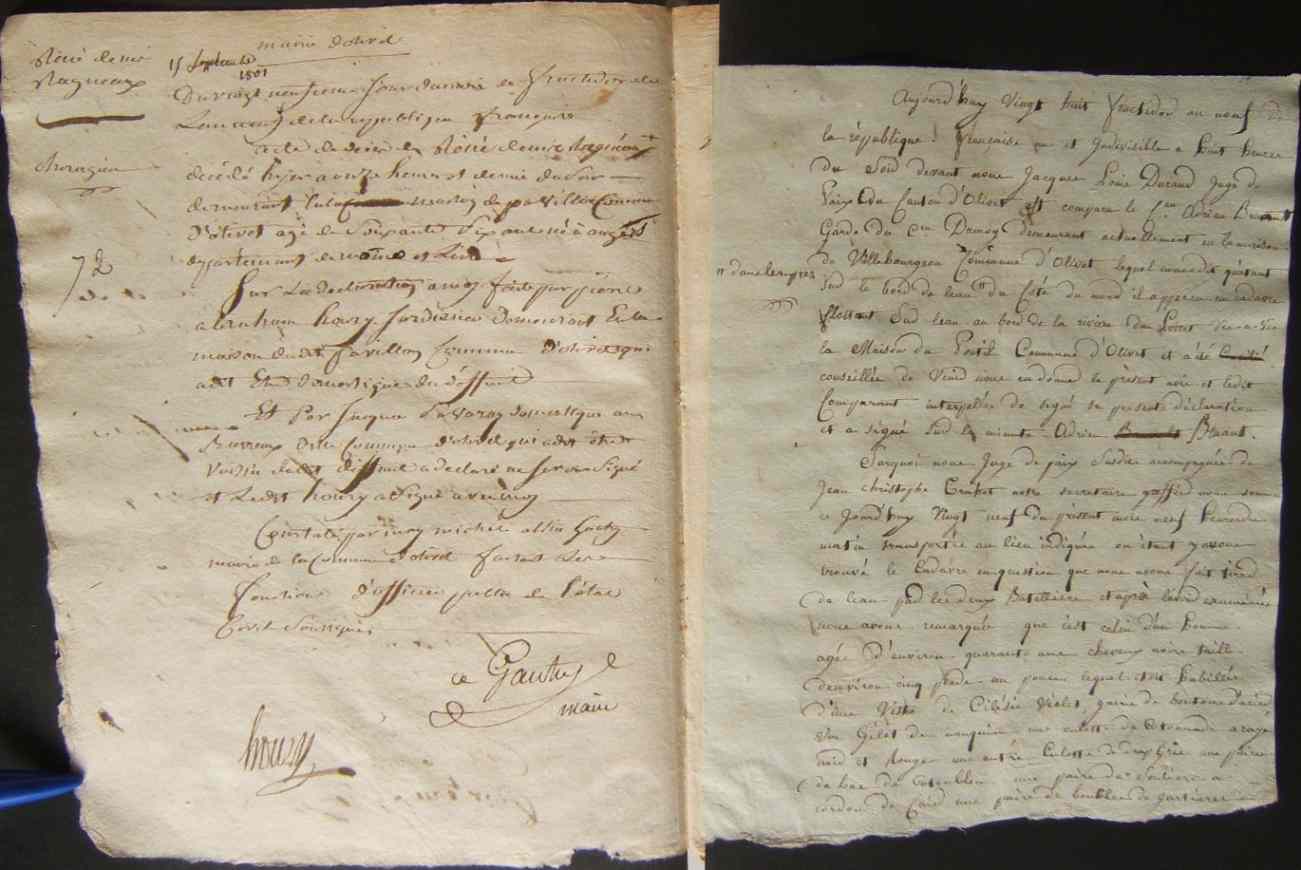 mairie d'olivet
15 septembre
1801
René denis
Ragneaux
Du vingt neufieme jour du mois de fructidor de
L'an neuf de la republique françoise
acte de deces de René denis Ragneaux
décédé hyer a onze heures et demie du soir
chirurgien
demeurant
Commune
D'olivet agé de soixante six ans né à angers
département de maine et Loire
72
Sur La declaration a moy faite par pierre
abraham houry jardinier Demeurant En la
maison dudit pavillon Commune d'olivet qui
adit Etre Domestique du deffunt
Et Par Jacque domestique au
Commune d'olivet qui adit être
voisin dudit deffunt a declaré ne scavoir Signé
et Ledit houry a Signé avec moy
Constaté par moy michel
maire de la Commune d'olivet faisant Les
fonctions d'officier public de l'état
Civil Soussigné
ce Gautry
maire
houry
Aujourd'huy Vingt huit fructidor an neuf de
la république française une et Indivisible a huit heures
du Soir devant nous Jacques Louis Durand Juge de
Paix du Canton d'Olivet est comparu le Cen Adrien Bruant
Garde du Cen Damoy Demeurant actuellement en la maison
de Villebourgeon Commune d'Olivet lequel nous a dit qu'étant
sur le bord de l'eau " du Coté du nord il apperçu un cadavre
flottant Sur l'eau au bord de la riviere du Loiret vis-a-vis
la Maison du Poutil Commune d'Olivet et a été
conseillée de Venir nous en donné le présent avis et ledit
Comparant interpellée de signé sa present déclaration
et a signé Sur la minute Adrien Bruant.
Surquoi nous Juge de paix Susdit accompagnée de
Jean Christophe notre secretaire greffier nous sommes
ce Jourd'huy Vingt neuf du présent mois neuf heures du
matin transportée au lieu indiquée ou étant y avons
trouvé le Cadavre en question que nous avons fait tirer
de l'eau par les deux Batelliers et après l'avoir examinée
nous avons remarquée que c'est celui d'un homme
agée D'environ quarante ans cheveux noirs taille
d'environ cinq pieds un pouce lequel etoit habillée
d'une Veste de Cilésie Violet, garnie de boutons d'acier
un Gilet de nanquin une culotte de Cotonnade a rayé
noir et Rouge une autre Culotte de drap Gris une paire
de bas de Coton bleu une paire de Souliers a
cordon de Cuir une paire de boucles de jartieres